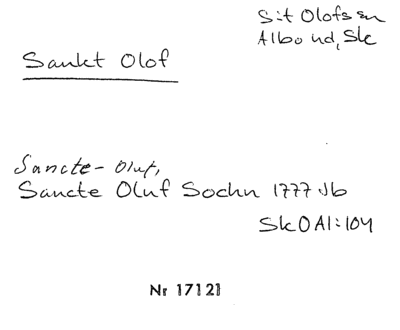 S:t Olofs sn
Albo hd, Sk
Sankt Olof
Sancte-Oluf,
Sancte Oluf Sochn 1777 Jb
SkOAl:104
Nr 17121